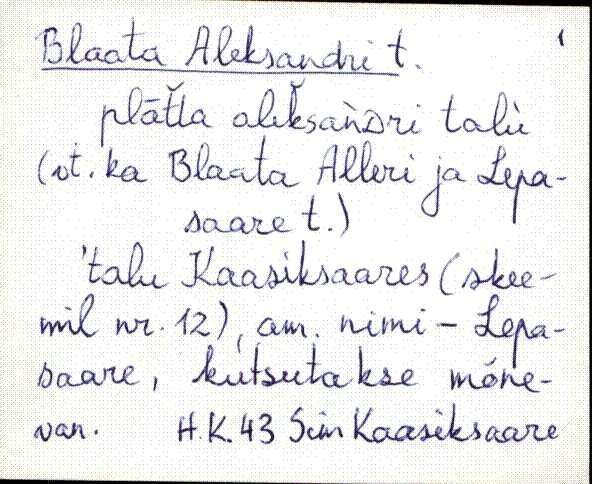 Blaata Aleksandri t. 1
plāt̆la alek̆san̆dri talù
(vt. ka Blaata Alleri ja Lepa-
saare t.)
'talu Kaasiksaares (skee-
mil nr. 12), am. nimi - Lepa-
saare, kutsutakse mõne-
van. H.K. 43 Sim Kaasiksaare